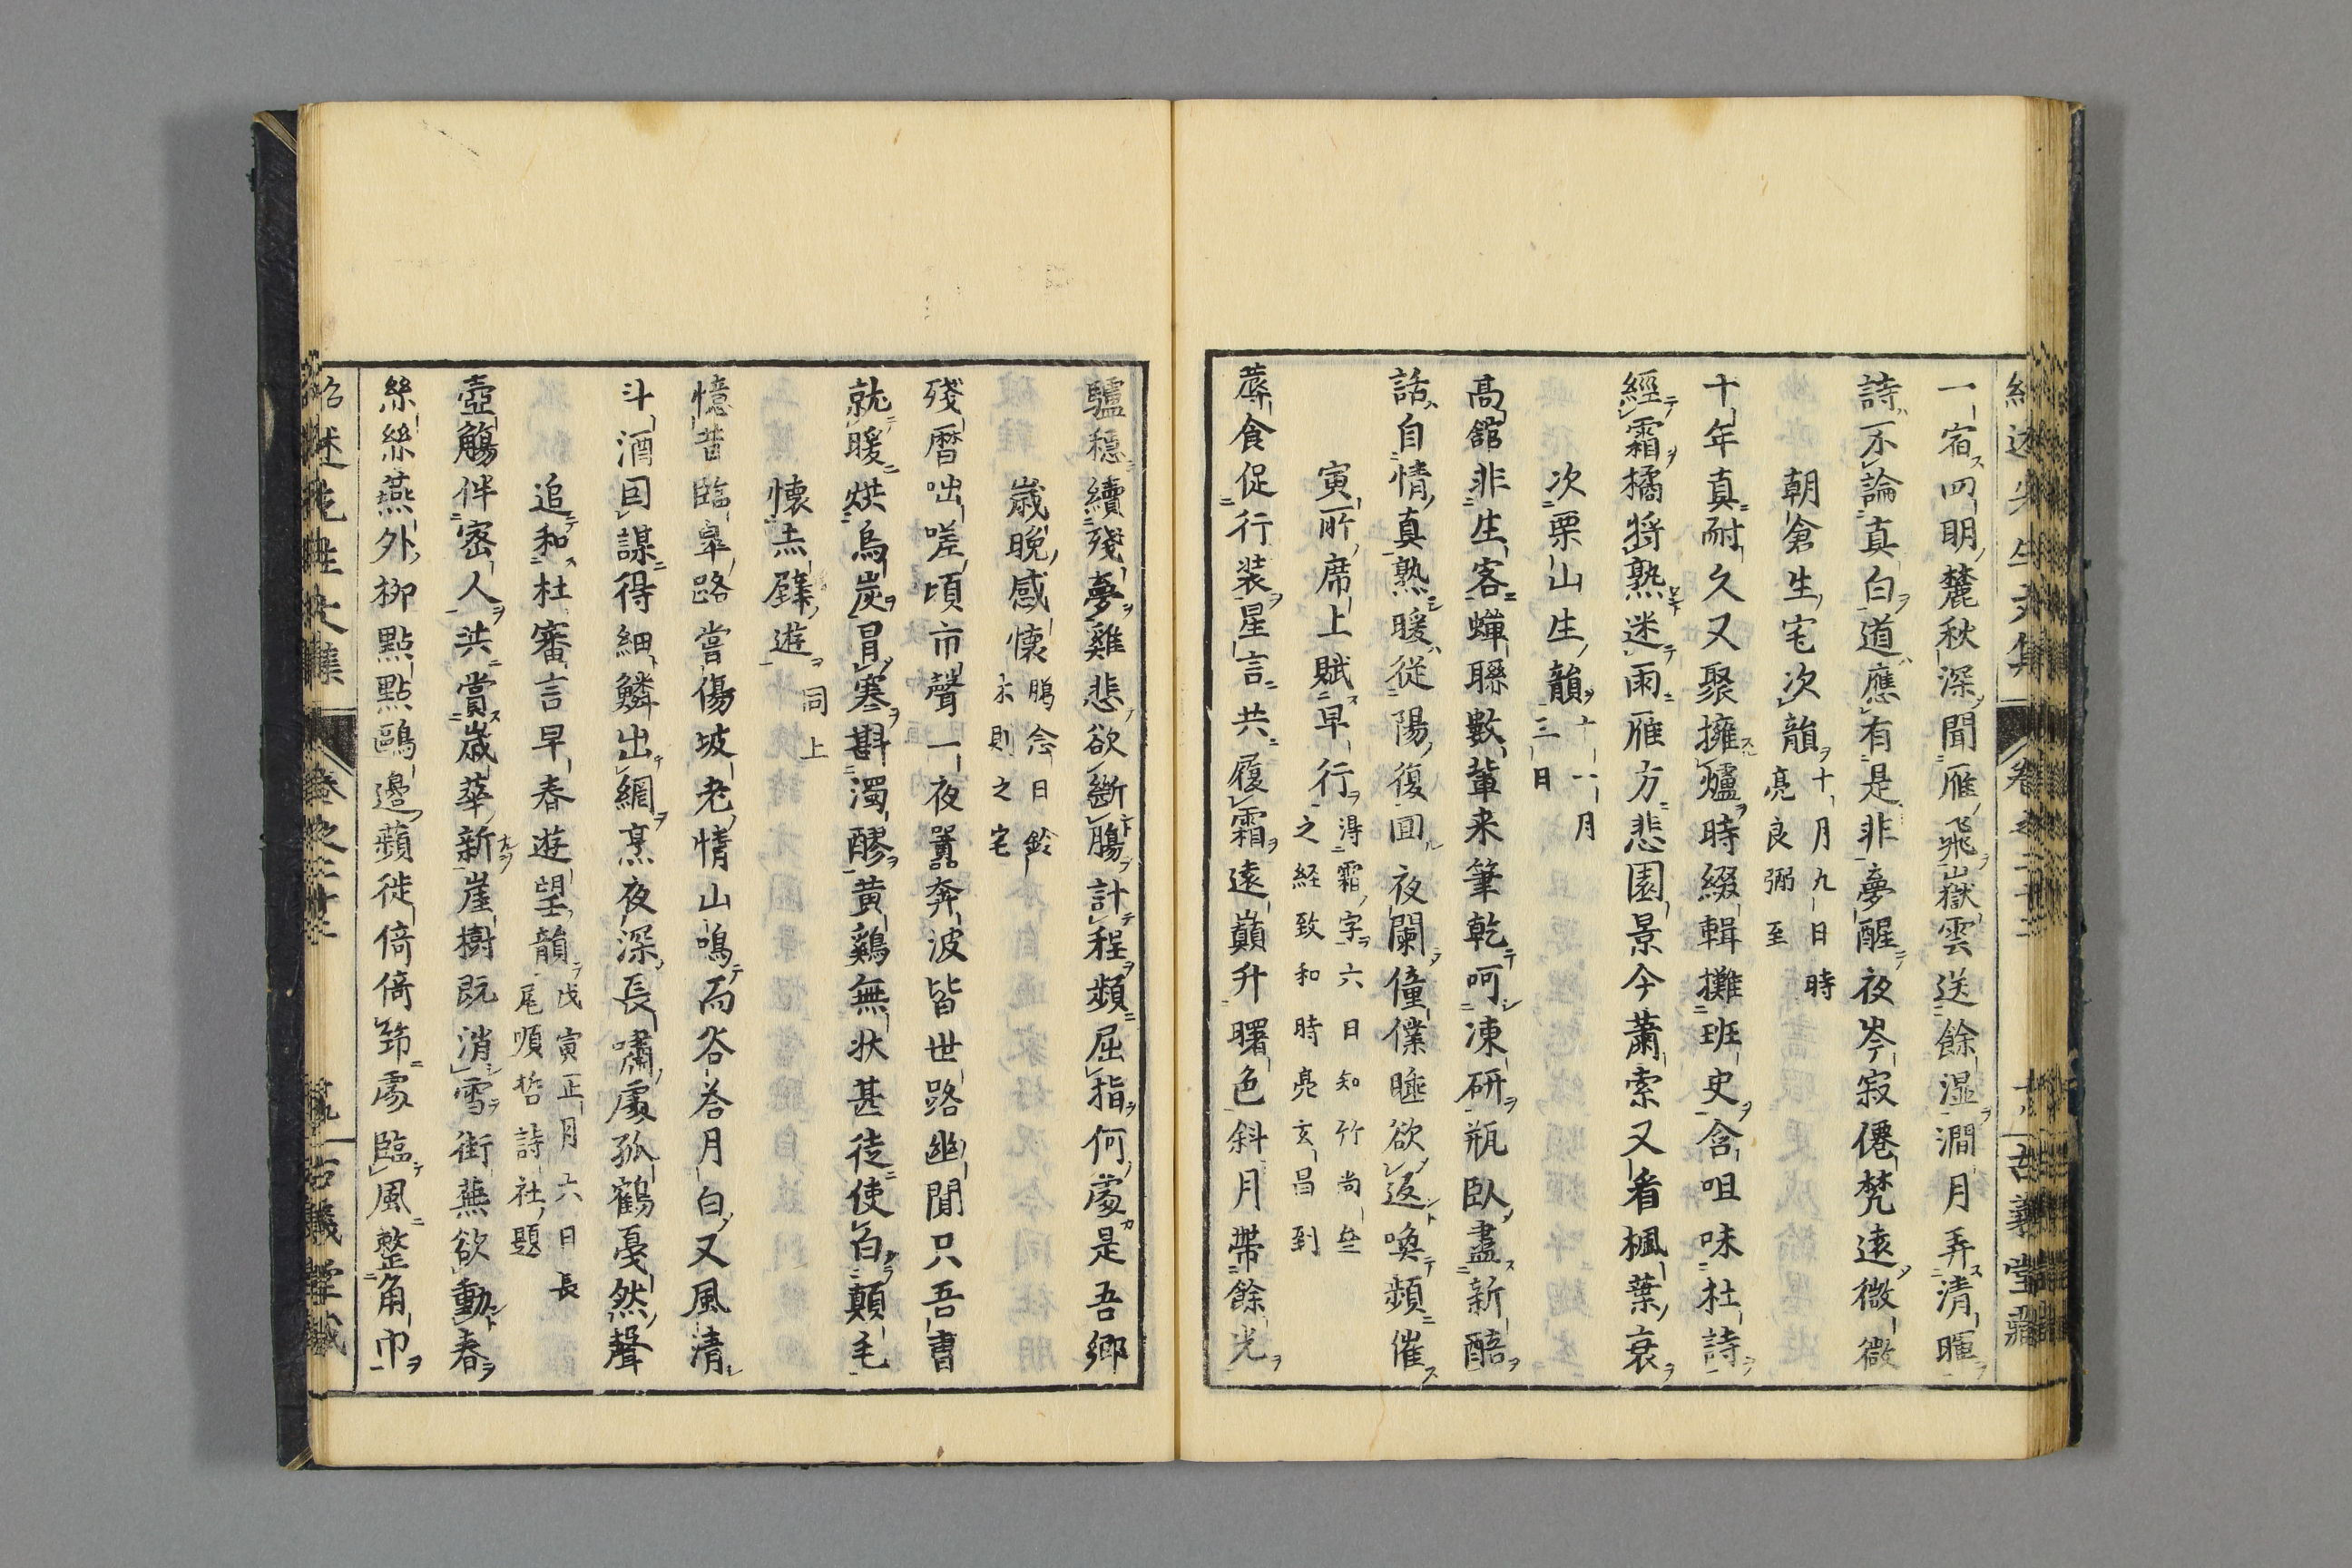 一宿四明麓秋深聞雁飛山嶽雲送餘湿澗月弄清暉
詩不論真白道應有是非夢醒夜岑寂僊梵遠微微
朝倉生宅次韻
十月九日時
亮良弼至
十年真耐久又聚擁爐時綴輯攤班史含咀味杜詩
經霜橘將熟迷雨雁方悲園景今蕭索又看楓葉衰
次栗山生韻
十一月
三日
高舘非生客蟬聯數輩来筆乾呵凍研瓶臥盡新醅
話自情真熟暖從陽復囬夜闌僮僕睡欲返喚頻催
寅所席上賦早行
得霜字六日知竹尚
之経致和時亮玄昌到
蓐食促行装星言共履霜遠巔升曙色斜月帶餘光
驢穏續殘夢雞悲欲斷膓計程頻屈指何處是吾鄉
歳晚感懐
臈念日鈴
木則之宅
殘曆咄嗟頃市聲一夜囂奔波皆世路幽閒只吾曹
就暖烘烏炭冒寒斟濁醪黄鷄無狀甚徒使白顛毛
懐赤壁遊
同上
憶昔臨皐路嘗傷坡老情山鳴而谷荅月白又風清
斗酒囙謀得細鱗出網烹夜深長嘯處孤鶴戞然聲
追和杜審言早春遊望韻
戊寅正月六日長
尾順哲詩社題
壺觴伴密人共賞歳華新崖樹既消雪街蕪欲動春
絲絲燕外柳點點鷗邊蘋徙倚倚筇處臨風整角巾